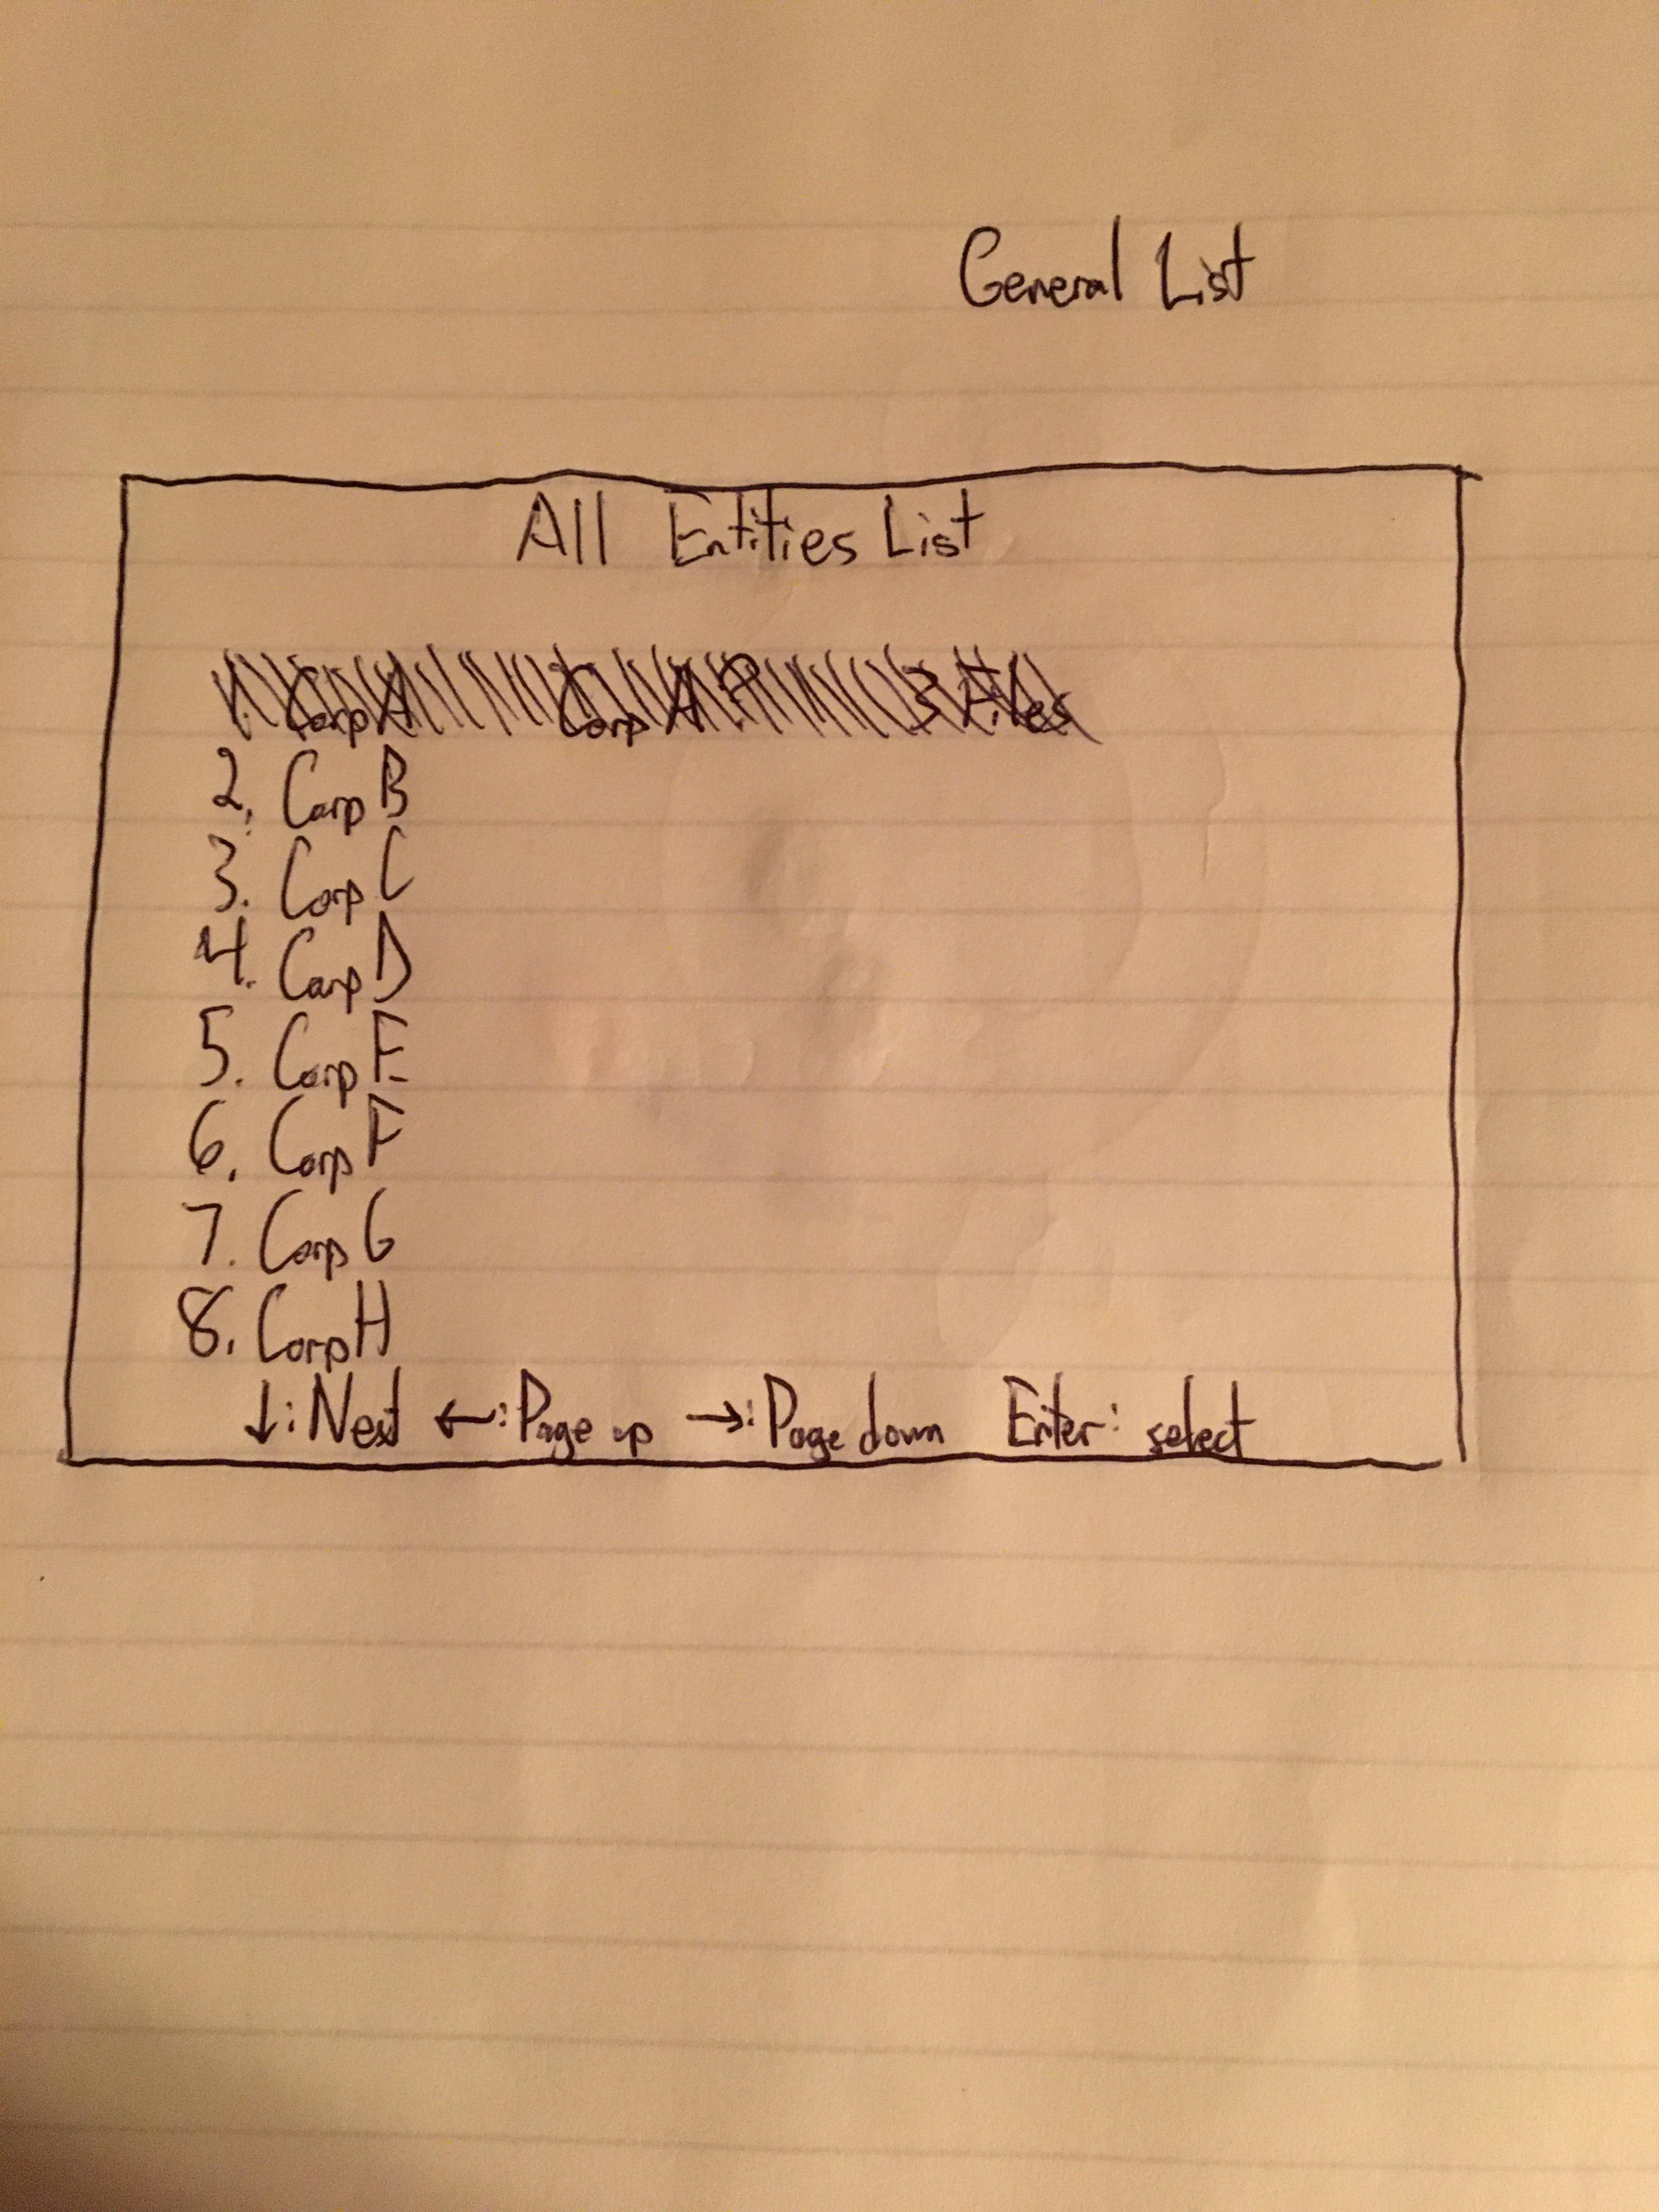 General List
All Entities List
1. Corp A Corp A 3 Files
2. Corp B
3. Corp C
4. Corp D
5. Corp E
6. Corp F
7. Corp G
8. Corp H
↓: Next ←: Page up →: Page down Enter: select